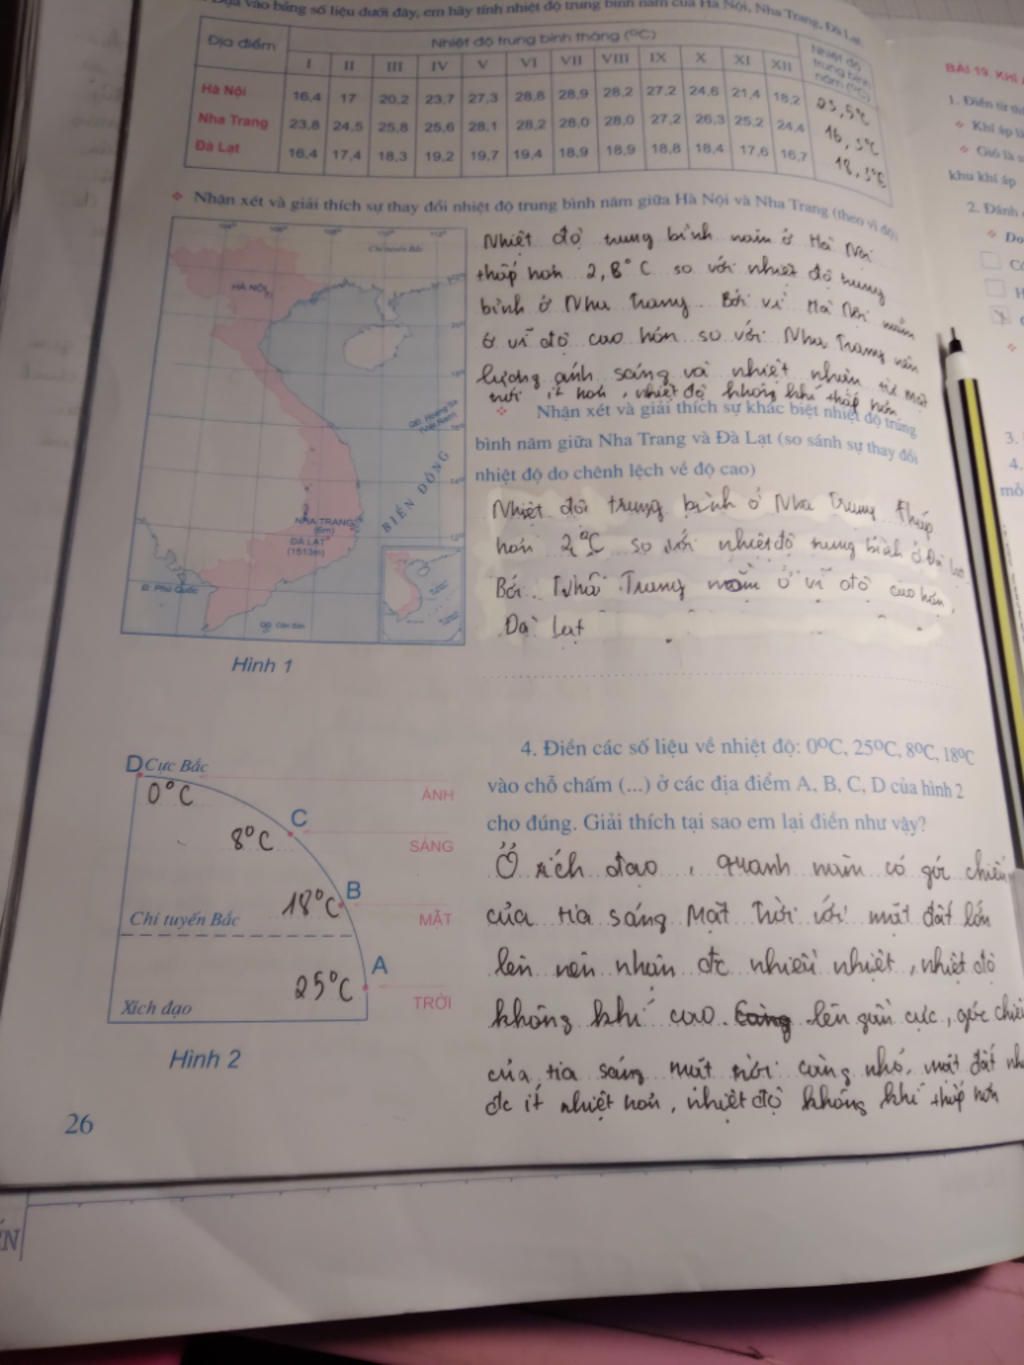 vào bảng số liệu dưới đây, em hãy tính nhiệt độ trung bình năm của Hà Nội, Nha Trang, Đà Lạt
Địa điểm
Nhiệt độ trung bình tháng (°C)
Nhiệt độ trung bình năm (°C)
I II III IV V VI VII VIII IX X XI XII
Hà Nội 16,4 17 20,2 23,7 27,3 28,8 28,9 28,2 27,2 24,6 21,4 18,2 23,5°C
Nha Trang 23,8 24,5 25,8 25,6 28,1 28,2 28,0 28,0 27,2 26,3 25,2 24,4 16,3°C
Đà Lạt 16,4 17,4 18,3 19,2 19,7 19,4 18,9 18,9 18,8 18,4 17,6 16,7 18,3°C
❖ Nhận xét và giải thích sự thay đổi nhiệt độ trung bình năm giữa Hà Nội và Nha Trang (theo vĩ độ)
Nhiệt độ trung bình năm ở Hà Nội
thấp hơn 2,8°C so với nhiệt độ trung
bình ở Nha Trang. Bởi vì Hà Nội nằm
ở vĩ độ cao hơn so với Nha Trang nên
lượng ánh sáng và nhiệt nhận từ mặt
trời ít hơn, nhiệt độ không khí thấp hơn
❖ Nhận xét và giải thích sự khác biệt nhiệt độ trung
bình năm giữa Nha Trang và Đà Lạt (so sánh sự thay đổi
nhiệt độ do chênh lệch về độ cao)
Nhiệt độ trung bình ở Nha Trang thấp
hơn 2°C so với nhiệt độ trung bình ở Đà Lạt
Bởi Nha Trang nằm ở vĩ độ cao hơn
Đà Lạt
Chí tuyến Bắc
HÀ NỘI
QĐ. Hoàng Sa
(Việt Nam)
BIỂN ĐÔNG
NHA TRANG
(6m)
ĐÀ LẠT
(1513m)
Đ. Phú Quốc
QĐ. Côn Sơn
Hình 1
4. Điền các số liệu về nhiệt độ: 0°C, 25°C, 8°C, 18°C
vào chỗ chấm (...) ở các địa điểm A, B, C, D của hình 2
cho đúng. Giải thích tại sao em lại điền như vậy?
Ở xích đạo, quanh năm có góc chiếu
của tia sáng Mặt Trời với mặt đất lớn
lên nên nhận đc nhiều nhiệt, nhiệt độ
không khí cao. Càng lên gần cực, góc chiếu
của tia sáng mặt trời càng nhỏ, mặt đất
đc ít nhiệt hơn, nhiệt độ không khí thấp hơn
D Cực Bắc
0°C
C
8°C
B
18°C
Chí tuyến Bắc
A
25°C
Xích đạo
ÁNH
SÁNG
MẶT
TRỜI
Hình 2
26
BÀI 19. KHÍ
1. Điền từ
❖ Khí áp là
❖ Gió là
khu khí áp
2. Đánh
❖ Do
3.
4.